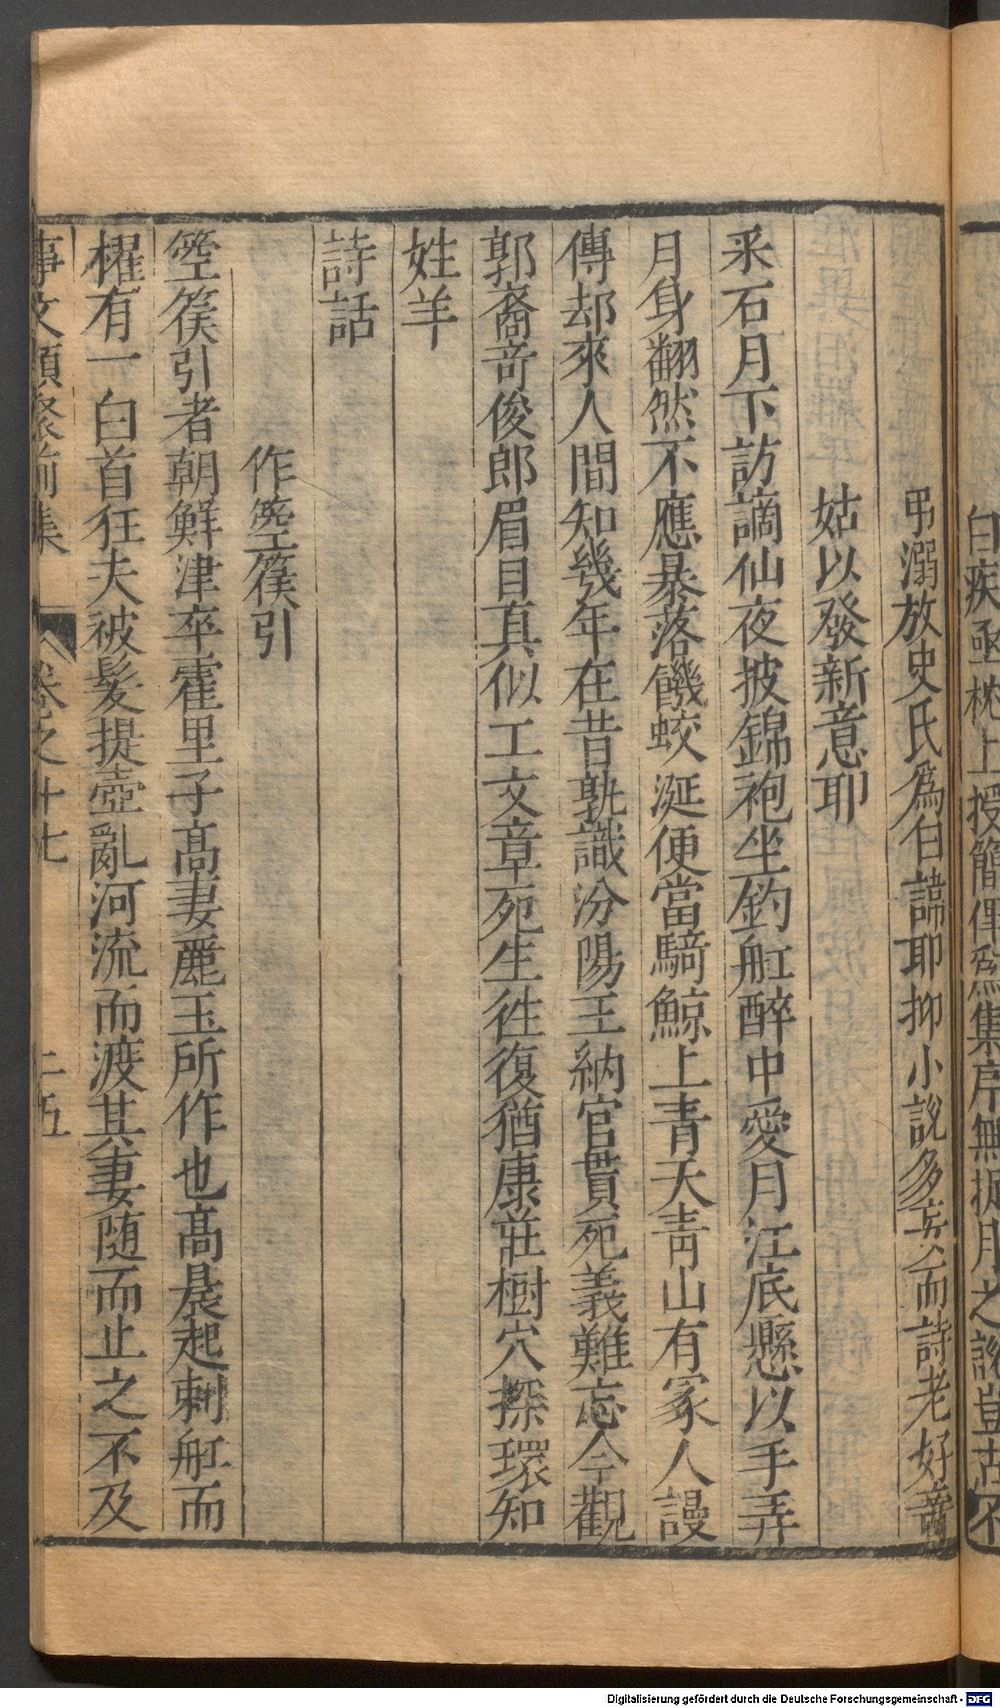 白疾亟枕上授簡俾爲集序無捉月之說豈古不
弔溺故史氏爲白諱耶抑小說多妄而詩老好奇
姑以發新意耶
采石月下訪謫仙夜披錦袍坐釣舡醉中愛月江底懸以手弄
月身翻然不應暴落饑蛟涎便當騎鯨上青天青山有冢人謾
傳却來人間知幾年在昔孰識汾陽王納官貰死義難忘今觀
郭裔奇俊郎眉目真似工文章死生徃復猶康莊樹穴探環知
姓羊
詩話
作箜篌引
箜篌引者朝鮮津卒霍里子髙妻麗玉所作也髙晨起刺舡而
櫂有一白首狂夫被髮提壺亂河流而渡其妻随而止之不及
事文類聚前集 卷之十七 二五
Digitalisierung gefördert durch die Deutsche Forschungsgemeinschaft - DFG